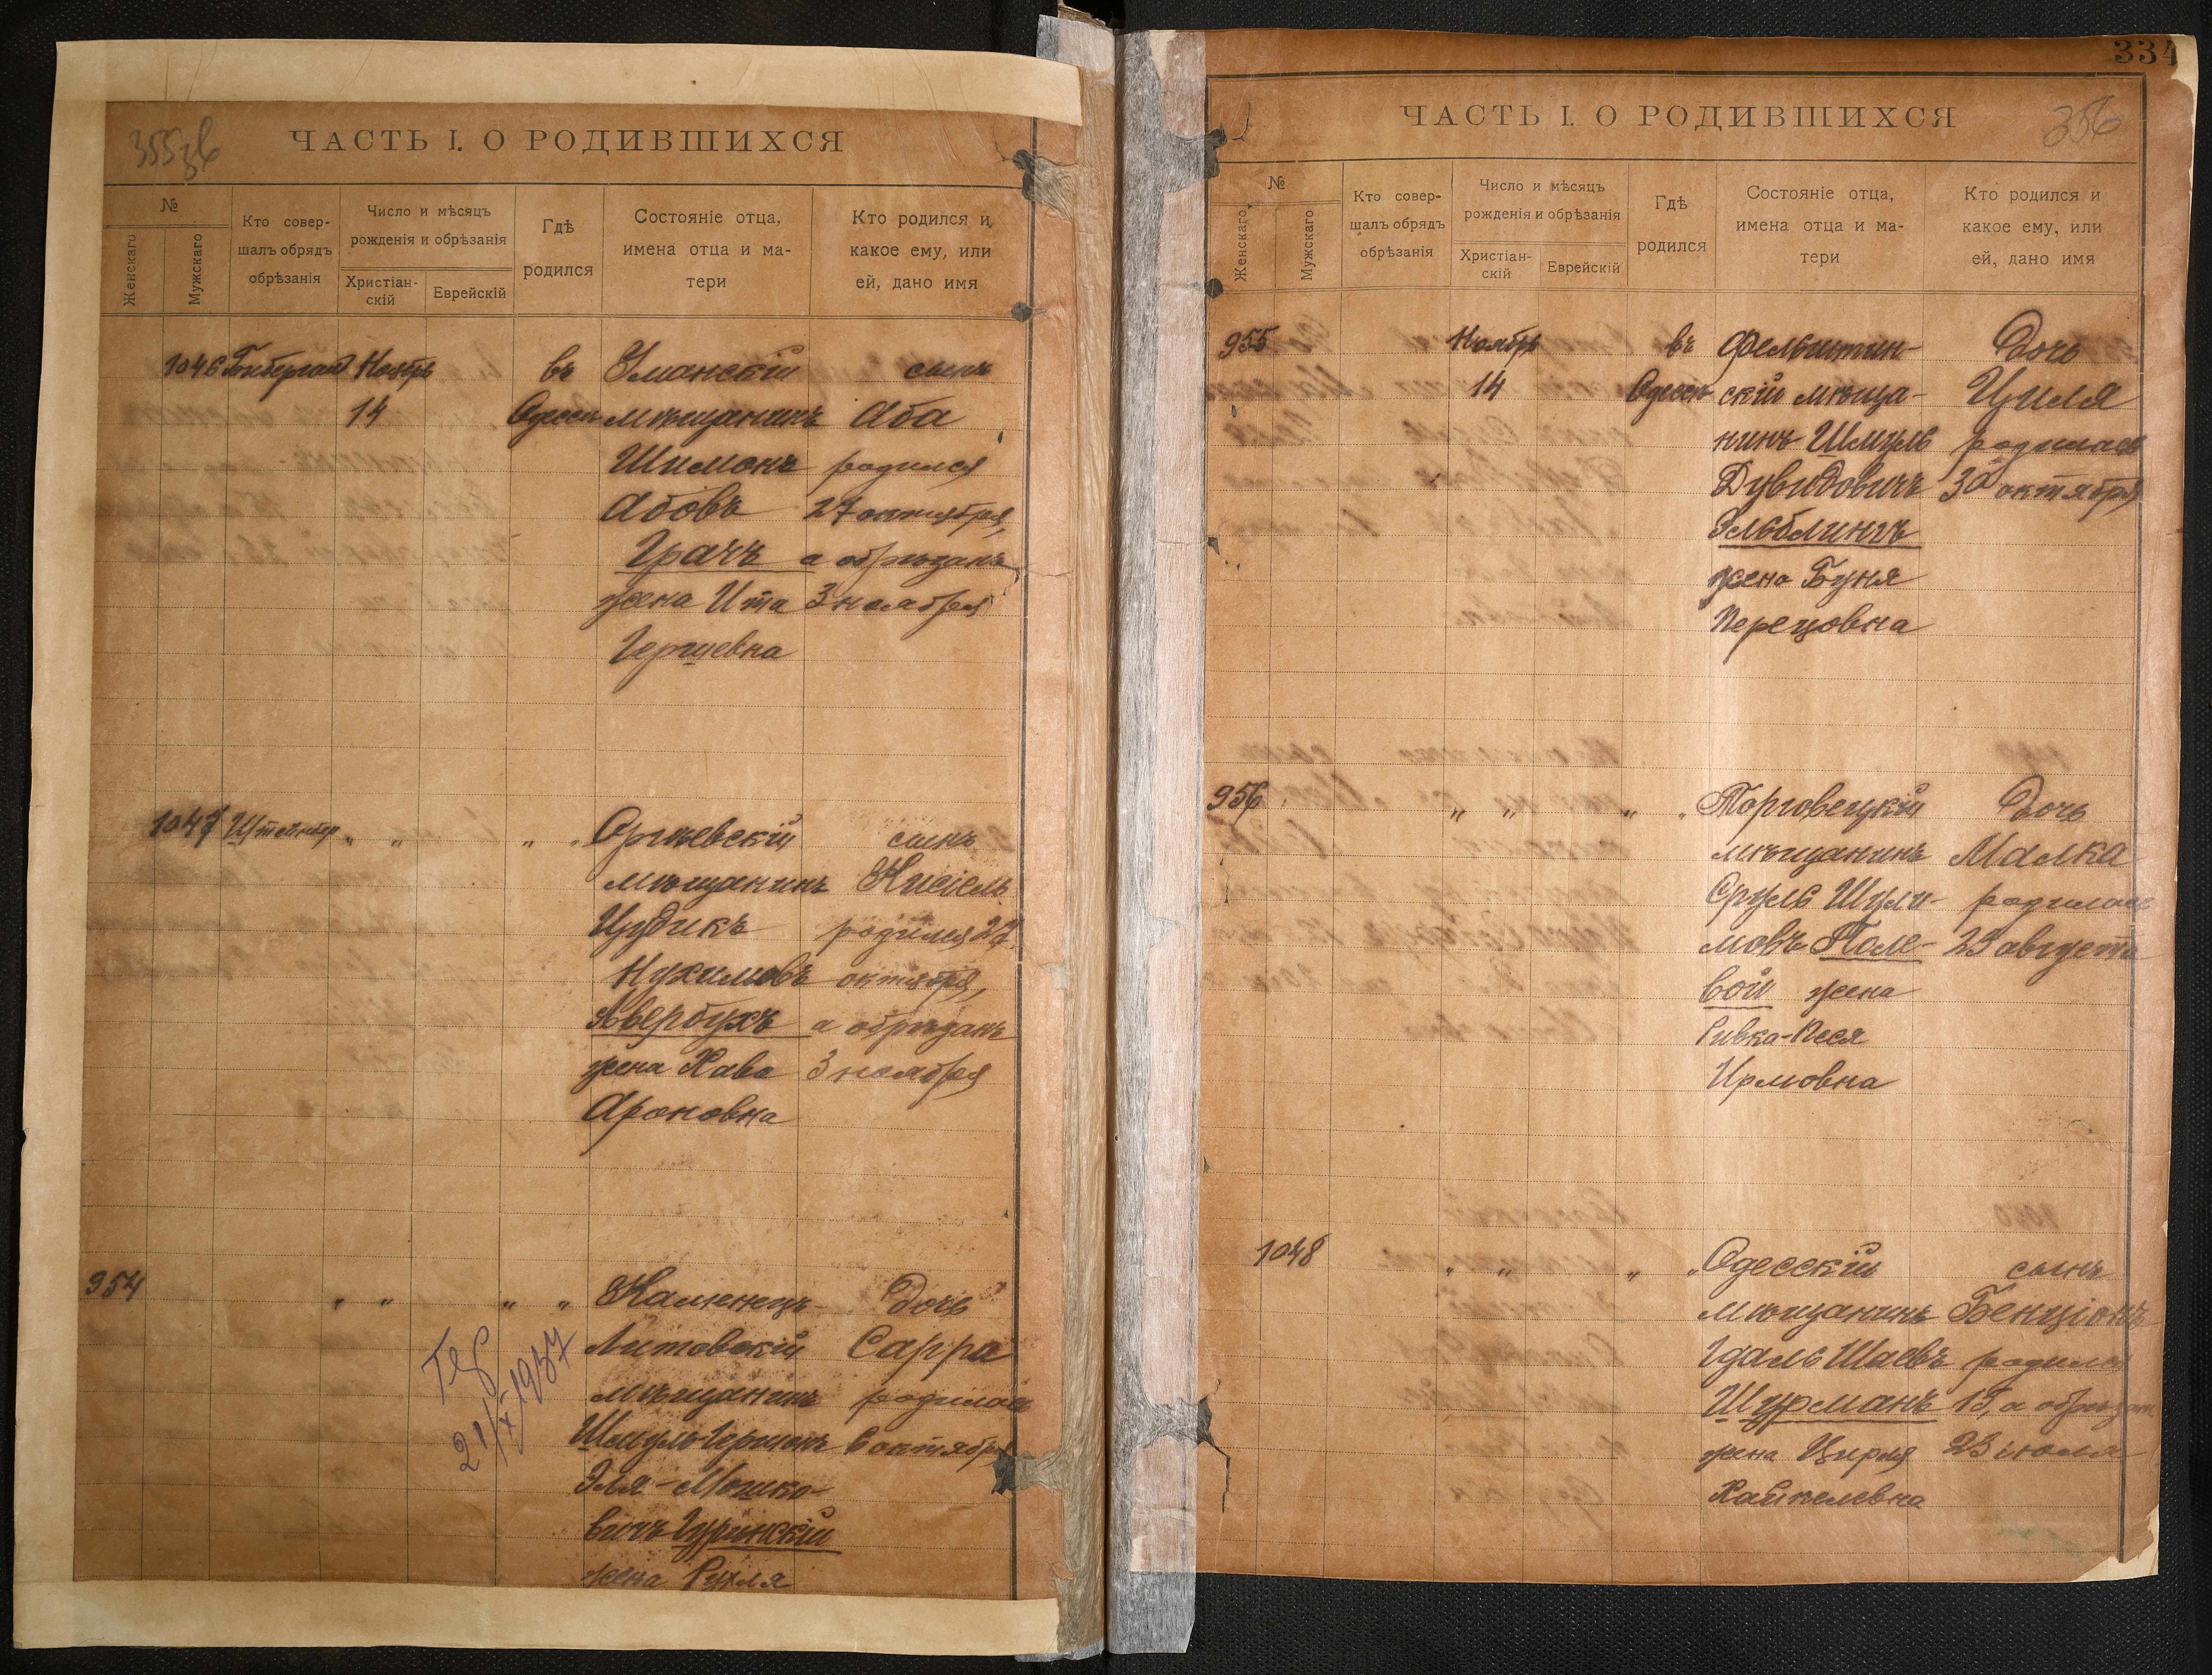 355
ЧАСТЬ I. О РОДИВШИХСЯ
№
Женскаго
Мужскаго
Кто совер-
шалъ обрядъ
обрѣзанія
Число и мѣсяцъ
рожденія и обрѣзанія
Христіан-
скій
Еврейскій
Гдѣ
родился
Состояніе отца,
имена отца и ма-
тери
Кто родился и,
какое ему, или
ей, дано имя
1046
Ноябрь
14
въ
Одессѣ
Уманскій
мѣщанинъ
Шимонъ
Абовъ
Грачъ
жена Ита
Гершевна
сынъ
Аба
родился
27 октября,
а обрѣзанъ
3 ноября
1047
" "
" "
Оргѣевскій
мѣщанинъ
Цудикъ
Нухимовъ
Авербухъ
жена Хава
Ароновна
сынъ
Кисіель
родился 27
октября,
а обрѣзанъ
3 ноября
954
" "
" "
Каменецъ-
Литовскій
мѣщанинъ
Шмуль-Гершонъ
Эля-Мошко-
вичъ Гуринскій
жена Рухля
дочь
Сарра
родилась
6 октября
21/X 1937
334
356
ЧАСТЬ I. О РОДИВШИХСЯ
№
Женскаго
Мужскаго
Кто совер-
шалъ обрядъ
обрѣзанія
Число и мѣсяцъ
рожденія и обрѣзанія
Христіан-
скій
Еврейскій
Гдѣ
родился
Состояніе отца,
имена отца и ма-
тери
Кто родился и
какое ему, или
ей, дано имя
955
Ноябрь
14
въ
Одессѣ
Фельштин-
скій мѣща-
нинъ Шмуль
Дувидовичъ
Эльблингъ
жена Буня
Перецовна
дочь
Циля
родилась
30 октября
956
" "
" "
Торговецкій
мѣщанинъ
Сруль Шули-
мовъ Поле-
вой жена
Ривка-Песя
Ирмовна
дочь
Малка
родилась
23 августа
1048
" "
" "
Одесскій
мѣщанинъ
Гдаль Шаевъ
Шурманъ
жена Цирля
Хайкелевна
сынъ
Бенціонъ
родился
15, а обрѣзанъ
23 іюля